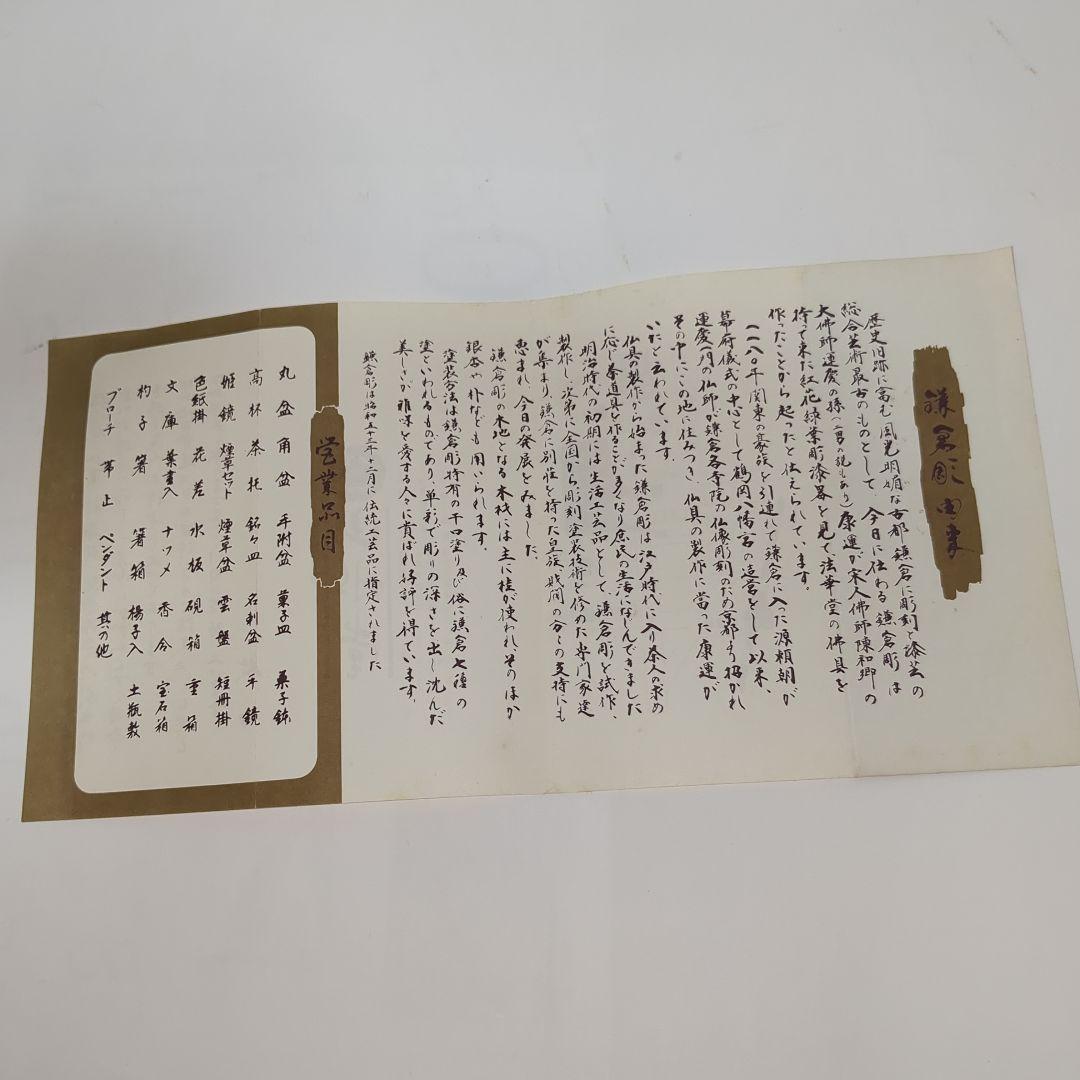 鎌倉彫由来
歴史旧跡に富む風光明媚な古都鎌倉に彫刻と漆芸の
総合芸術最古のものとして、今日に伝わる鎌倉彫は
大佛師運慶の孫(二男の説もあり)康運が宋人佛師陳和卿の
持って来た紅花緑葉彫漆器を見て、法華堂の佛具を
作ったことから起ったと伝えられています。
一一八〇年関東の豪族を引連れて鎌倉に入った源頼朝が
幕府儀式の中心として鶴岡八幡宮の造営をして以来、
運慶一門の仏師が鎌倉各寺院の仏像彫刻のため京都より招かれ
その中にこの地に住みつき、仏具の製作に当った康運が
いたと云われています。
仏具の製作から始まった鎌倉彫は江戸時代に入り茶人の求め
に応じ茶道具を作ることが多くなり庶民の生活になじんできました
明治時代の初期には生活工芸品として、鎌倉彫を試作、
製作し、次第に全国から彫刻塗装技術を修めた専門家達
が集まり、鎌倉に別荘を持った皇族、財閥の方々の支持にも
恵まれ、今日の発展をみました。
鎌倉彫の木地となる木材には主に桂が使われ、そのほか
銀杏や朴なども用いられます。
塗装方法は鎌倉彫特有の干口塗り及び俗に鎌倉七種の
塗といわれるものであり、単彩で彫りの深さを出し沈んだ
美しさが雅味を愛する人々に貴ばれ好評を得ています。
鎌倉彫は昭和五十三年十二月に伝統工芸品に指定されました
営業品目
丸盆 角盆 手附盆 菓子皿 菓子鉢
高杯 茶托 銘々皿 名刺盆 手鏡
姫鏡 煙草セット 煙草盆 雲盤 短冊掛
色紙掛 花差 水板 硯箱 重箱
文庫 葉書入 ナツメ 香合 宝石箱
杓子 箸 箸箱 楊子入 土瓶敷
ブローチ 帯止 ペンダント 其の他